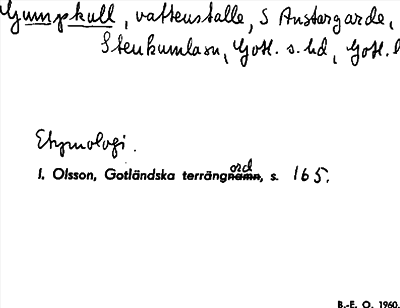 Gumpkull, vattenställe, S Austergarde,
Stenkumla sn, Gotl. s. hd, Gotl. l
Etymologi.
I. Olsson, Gotländska terrängord, s. 165.
B.-E. O. 1960.